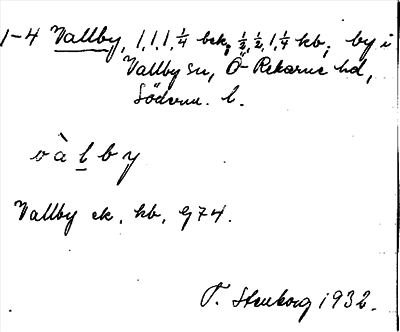 1-4 Vallby, 1, 1, 1, ¼ bck, ½, ½, 1, ¼ kb, by i
Vallby sn, Ö-Rekarne hd,
Söderm. l.
v à l b y
Vallby ek. kb, 974.
T. Stenborg 1932.